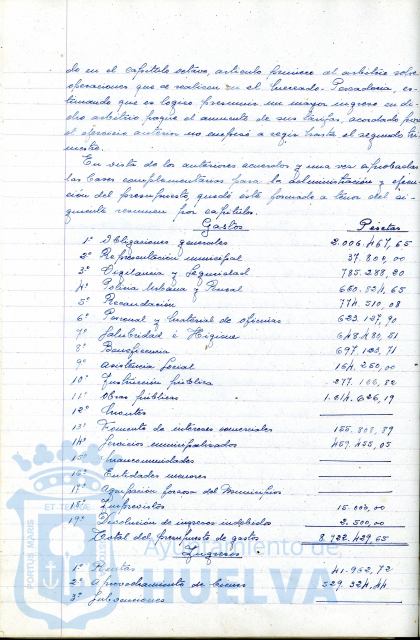 do en el capítulo octavo, artículo primero el arbitrio sobre
operaciones que se realicen en el Mercado-Pescadería, es-
timando que es lógico presumir un mayor ingreso en di-
cho arbitrio porque el aumento de sus tarifas, acordado para
el ejercicio anterior no empezó a regir hasta el segundo tri-
mestre.
En vista de los anteriores acuerdos y una vez aprobadas
las bases complementarias para la administración y ejecu-
ción del presupuesto, quedó éste formado a tenor del si-
guiente resumen por capítulos.
Gastos Pesetas
1º Obligaciones generales 2.006.467,65
2º Representación municipal 37.800,00
3º Vigilancia y Seguridad 785.288,20
4º Policía Urbana y Rural 660.524,65
5º Recaudación 774.510,08
6º Personal y material de oficinas 623.127,90
7º Salubridad e Higiene 648.480,51
8º Beneficencia 697.123,71
9º Asistencia Social 164.250,00
10º Instrucción pública 277.166,82
11º Obras públicas 1.014.626,19
12º Montes
13º Fomento de intereses comunales 155.808,89
14º Servicios municipalizados 459.455,05
15º Mancomunidades
16º Entidades menores
17º Agrupación forzosa del Municipio
18º Imprevistos 15.000,00
19º Devolución de ingresos indebidos 2.500,00
Total del presupuesto de gastos 8.722.429,65
Ingresos
1º Rentas 41.952,72
2º Aprovechamiento de bienes 529.324,44
3º Subvenciones
Ayuntamiento de
HUELVA
PORTUS MARIS
ET TERRAE